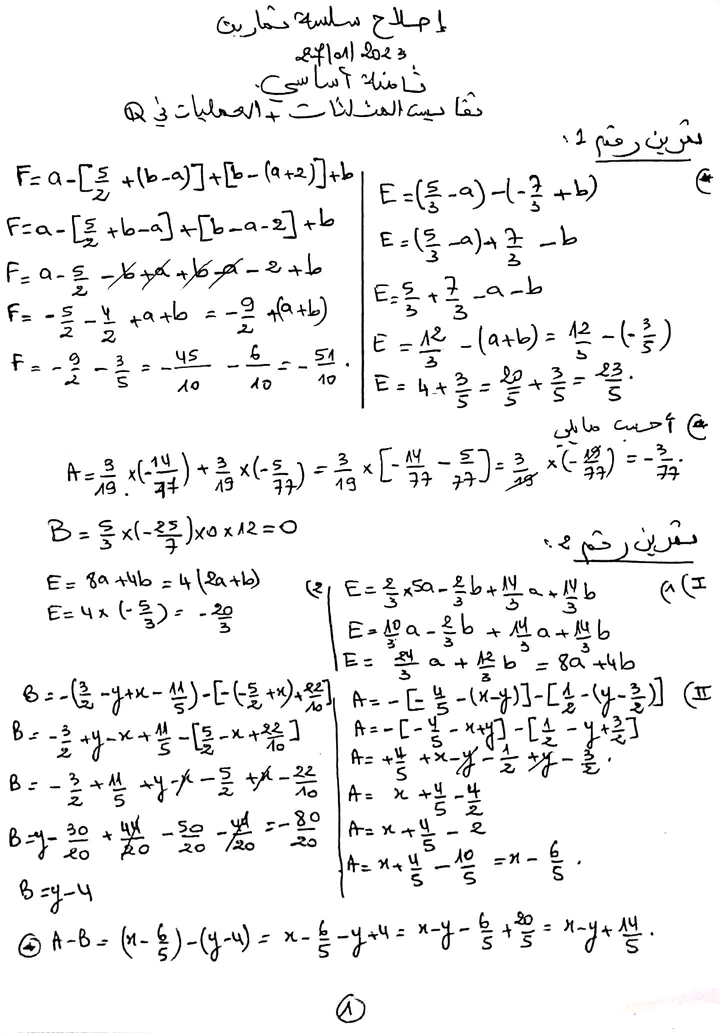 إصلاح سلسلة تمارين
27/01/2023
ثامنة أساسي
تقايس المثلثات + العمليات في Q
تمرين رقم 1:
E = (5/3 - a) - (-7/3 + b)
E = (5/3 - a) + 7/3 - b
E = 5/3 + 7/3 - a - b
E = 12/3 - (a+b) = 12/3 - (-3/5)
E = 4 + 3/5 = 20/5 + 3/5 = 23/5.
F = a - [5/2 + (b-a)] + [b - (a+2)] + b
F = a - [5/2 + b - a] + [b - a - 2] + b
F = a - 5/2 - b + a + b - a - 2 + b
F = -5/2 - 4/2 + a + b = -9/2 + (a+b)
F = -9/2 - 3/5 = -45/10 - 6/10 = -51/10.
* أحسب مايلي
A = 3/19 × (-14/77) + 3/19 × (-5/77) = 3/19 × [-14/77 - 5/77] = 3/19 × (-19/77) = -3/77.
B = 5/3 × (-25/7) × 0 × 12 = 0
تمرين رقم 2:
I) 1) E = 2/3 × 5a - 2/3 b + 14/3 a + 14/3 b
E = 10/3 a - 2/3 b + 14/3 a + 14/3 b
E = 24/3 a + 12/3 b = 8a + 4b
2) E = 8a + 4b = 4(2a+b)
E = 4 × (-5/3) = -20/3
II) A = -[-4/5 - (x-y)] - [1/2 - (y - 3/2)]
A = -[-4/5 - x + y] - [1/2 - y + 3/2]
A = +4/5 + x - y - 1/2 + y - 3/2.
A = x + 4/5 - 4/2
A = x + 4/5 - 2
A = x + 4/5 - 10/5 = x - 6/5.
B = -(3/2 - y + x - 11/5) - [-(-5/2 + x) + 22/10]
B = -3/2 + y - x + 11/5 - [5/2 - x + 22/10]
B = -3/2 + 11/5 + y - x - 5/2 + x - 22/10
B = y - 30/20 + 44/20 - 50/20 - 44/20 = -80/20
B = y - 4
* A - B = (x - 6/5) - (y - 4) = x - 6/5 - y + 4 = x - y - 6/5 + 20/5 = x - y + 14/5.
1